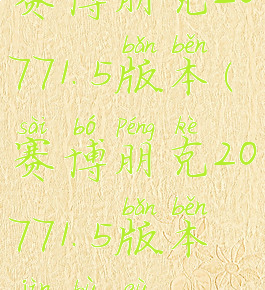 赛博朋克20
bǎn běn
771.5版本(
sài bó péng kè
赛博朋克20
bǎn běn
771.5版本